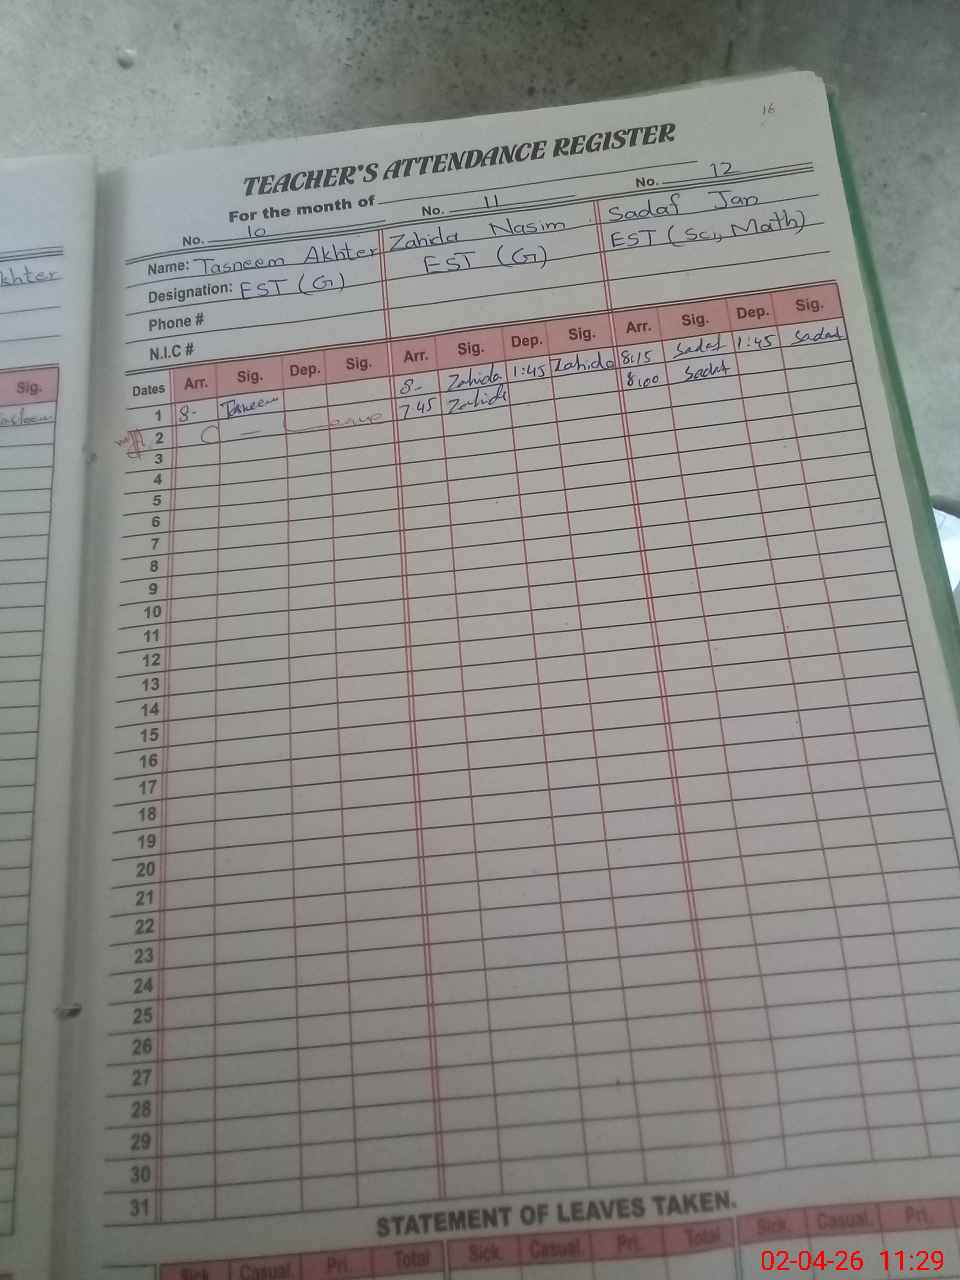 16
TEACHER'S ATTENDANCE REGISTER
For the month of
No. 10 No. 11 No. 12
Name: Tasneem Akhter Zahida Nasim Sadaf Jan
Designation: EST (G) EST (G) EST (Sci, Math)
Phone #
N.I.C #
Dates Arr. Sig. Dep. Sig. Arr. Sig. Dep. Sig. Arr. Sig. Dep. Sig.
1 8- Tasneem 8- Zahida 1:45 Zahida 8:15 Sadaf 1:45 Sadaf
2 C — Leave 7 45 Zahida 8:00 Sadaf
3
4
5
6
7
8
9
10
11
12
13
14
15
16
17
18
19
20
21
22
23
24
25
26
27
28
29
30
31
STATEMENT OF LEAVES TAKEN.
Sick. Casual. Pri. Total Sick. Casual. Pri. Total Sick. Casual. Pri.
khter
Sig.
02-04-26 11:29